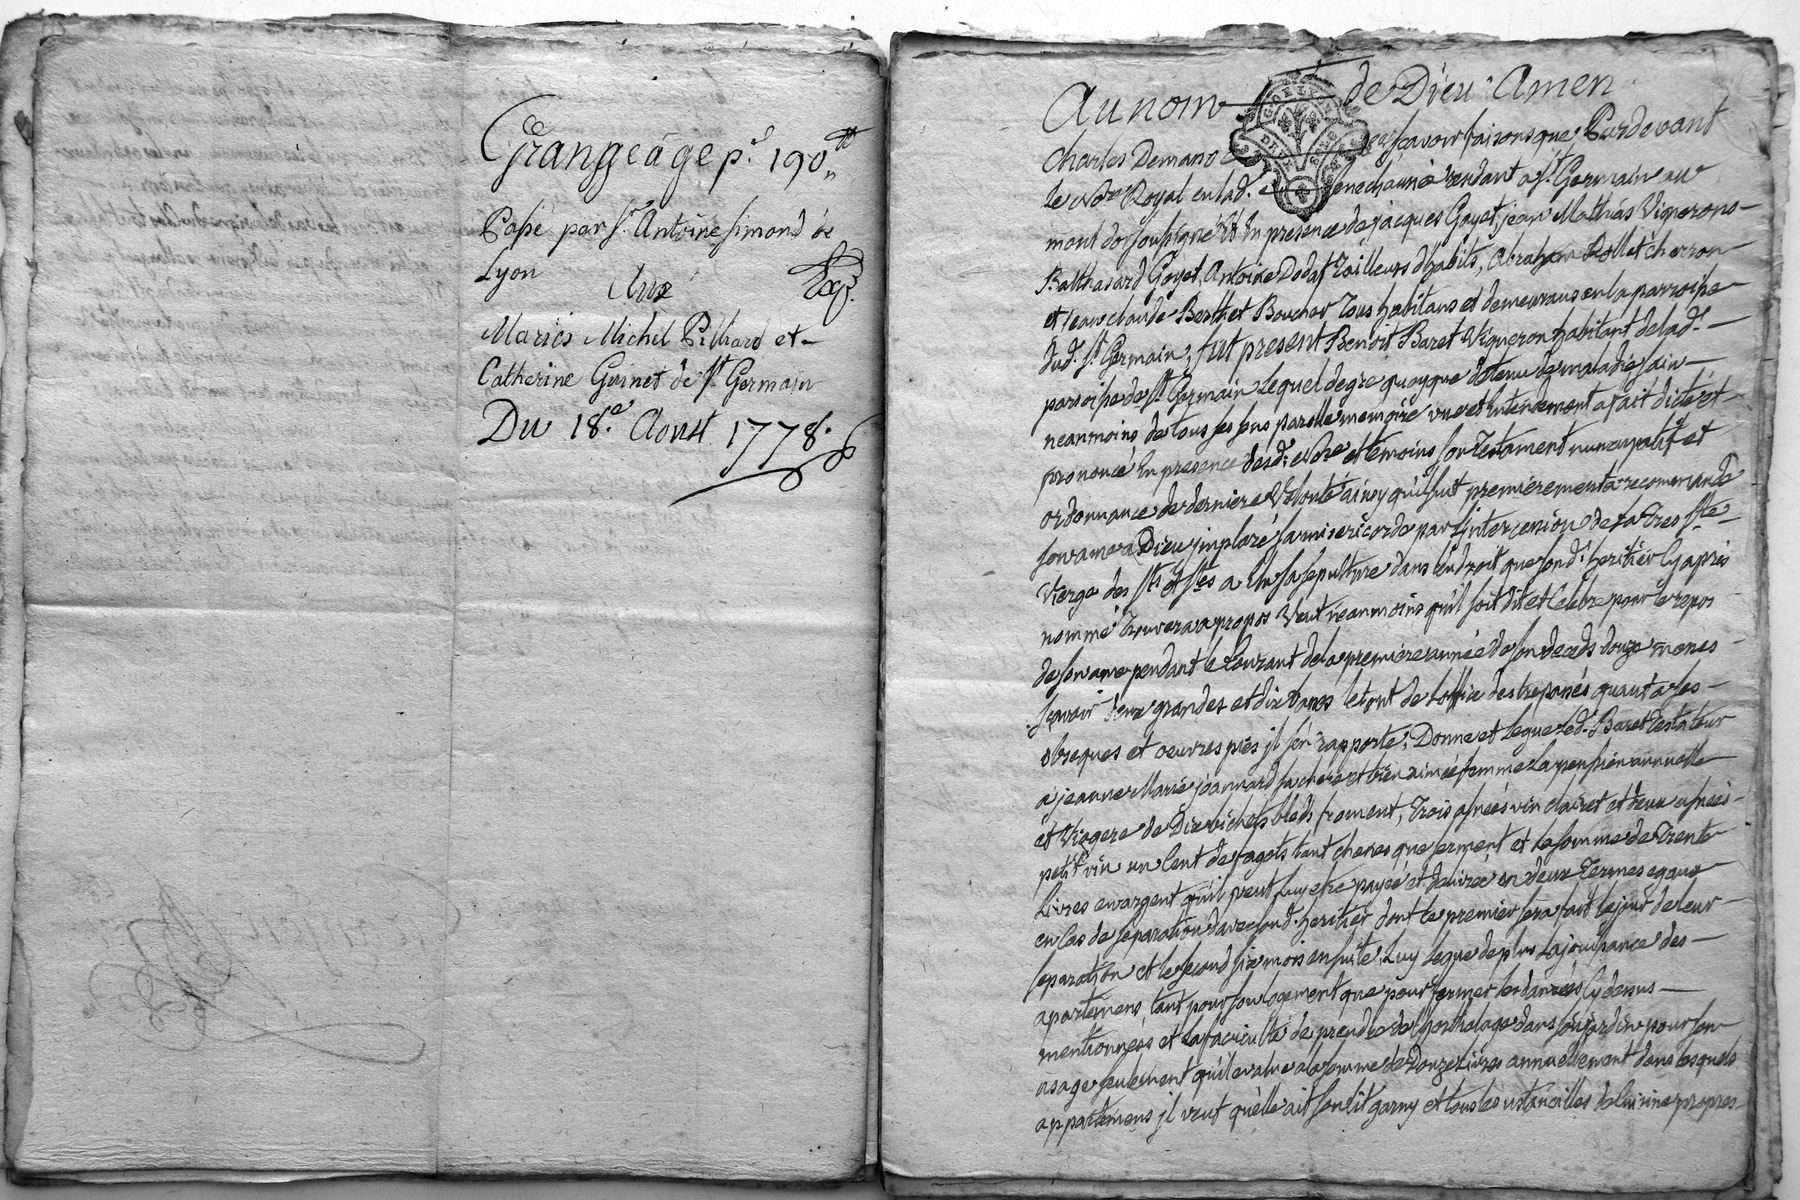 Grangeage p.r 190 ₶
Passé par S.r Antoine Simond de
Lyon
Aux
Exp.
Mariés Michel Pilliard et
Catherine Guinet de St Germain
Du 18.e Aoust 1778.
Au nom de Dieu Amen
Charles Demars sçavoir faisons que Pardevant
le Royal en lad. senechaussée residant a St Germain au
mont dor soussigné Et En presence de jacques Gayet, jean Mathias Vignerons
Balthazard Goyet, Antoine Dodat Tailleurs d'habits, Abraham Rollet cherron
et jean claude Berthet Boucher tous habitans et demeurans en la parroisse
dud. St Germain, fut present Benoit Baret Vigneron habitant de lad.
parroisse de St Germain Lequel de gré quoyque detenu de maladie sain
neanmoins de tous ses sens parolle memoire vue et entendement a fait dicté et
prononcé En presence desd. et temoins son Testament nuncupatif et
ordonnance de derniere Volonté ainsy qu'il suit premierement a recommandé
son ame a Dieu imploré sa misericorde par L'intercession de la Tres Ste
Vierge des Sts et Stes a Elu sa sepulture dans l'endroit que sond. heritier Cy apres
nommé Trouvera a propos Veut neanmoins qu'il soit dit et Celebré pour le repos
de son ame pendant le Courant de la premiere année de son deceds douze messes
sçavoir deux grandes et dix basses le tout de L'office des trepassés quant a ses
obseques et oeuvres pies il s'en rapporte, Donne et Legue Led. Baret testateur
a jeanne Marie jeannard sa chere et bien aimée femme La pension annuelle
et Viagere de Dix bichets bleds froment, Trois asnées vin clairet et deux asnées
petit vin un Cent de fagots tant chenes que serment et La somme de Trente
Livres en argent qu'il veut Luy etre payée et delivrée en deux Termes egaux
en Cas de separation d'avec sond. heritier dont le premier sera fait le jour de leur
separation et le second six mois ensuite, Luy Legue de plus La jouissance des
apartemens tant pour son logement que pour fermer les danrées Cy dessus
mentionnées et la faculté de prendre de l'hortolage dans son jardin pour son
usage seulement qu'il evalue a la somme de Douze Livres annuellement dans lesquels
appartemens il veut qu'elle ait son lit garny et tous les ustancilles de Cuisine propres